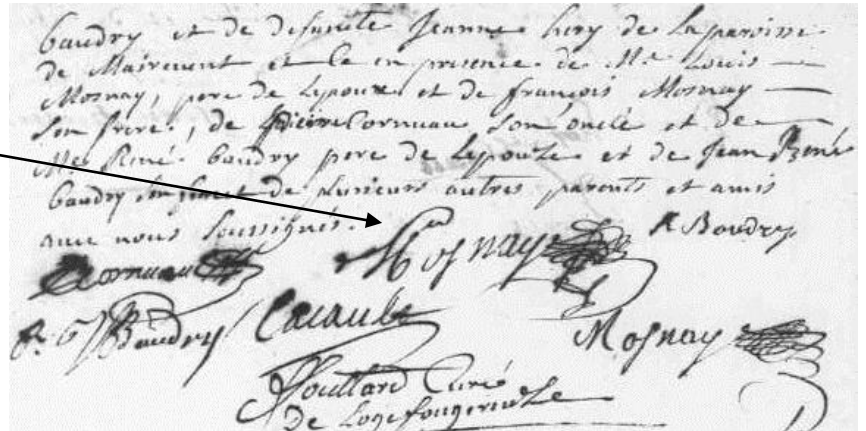 baudry et de defuncte Jeanne hury de la paroisse
de Mairevent et ce en presence de Me Louis
Mosnay, pere de lepoux et de françois Mosnay
son frere, de Cornuau son oncle et de
Me René baudry pere de lepouze et de Jean René
baudry de plusieurs autres parents et amis
avec nous soussignés.
Mosnay R Baudry
Cornuau
Baudry Cacault Mosnay
Curé
de Logefougereuse